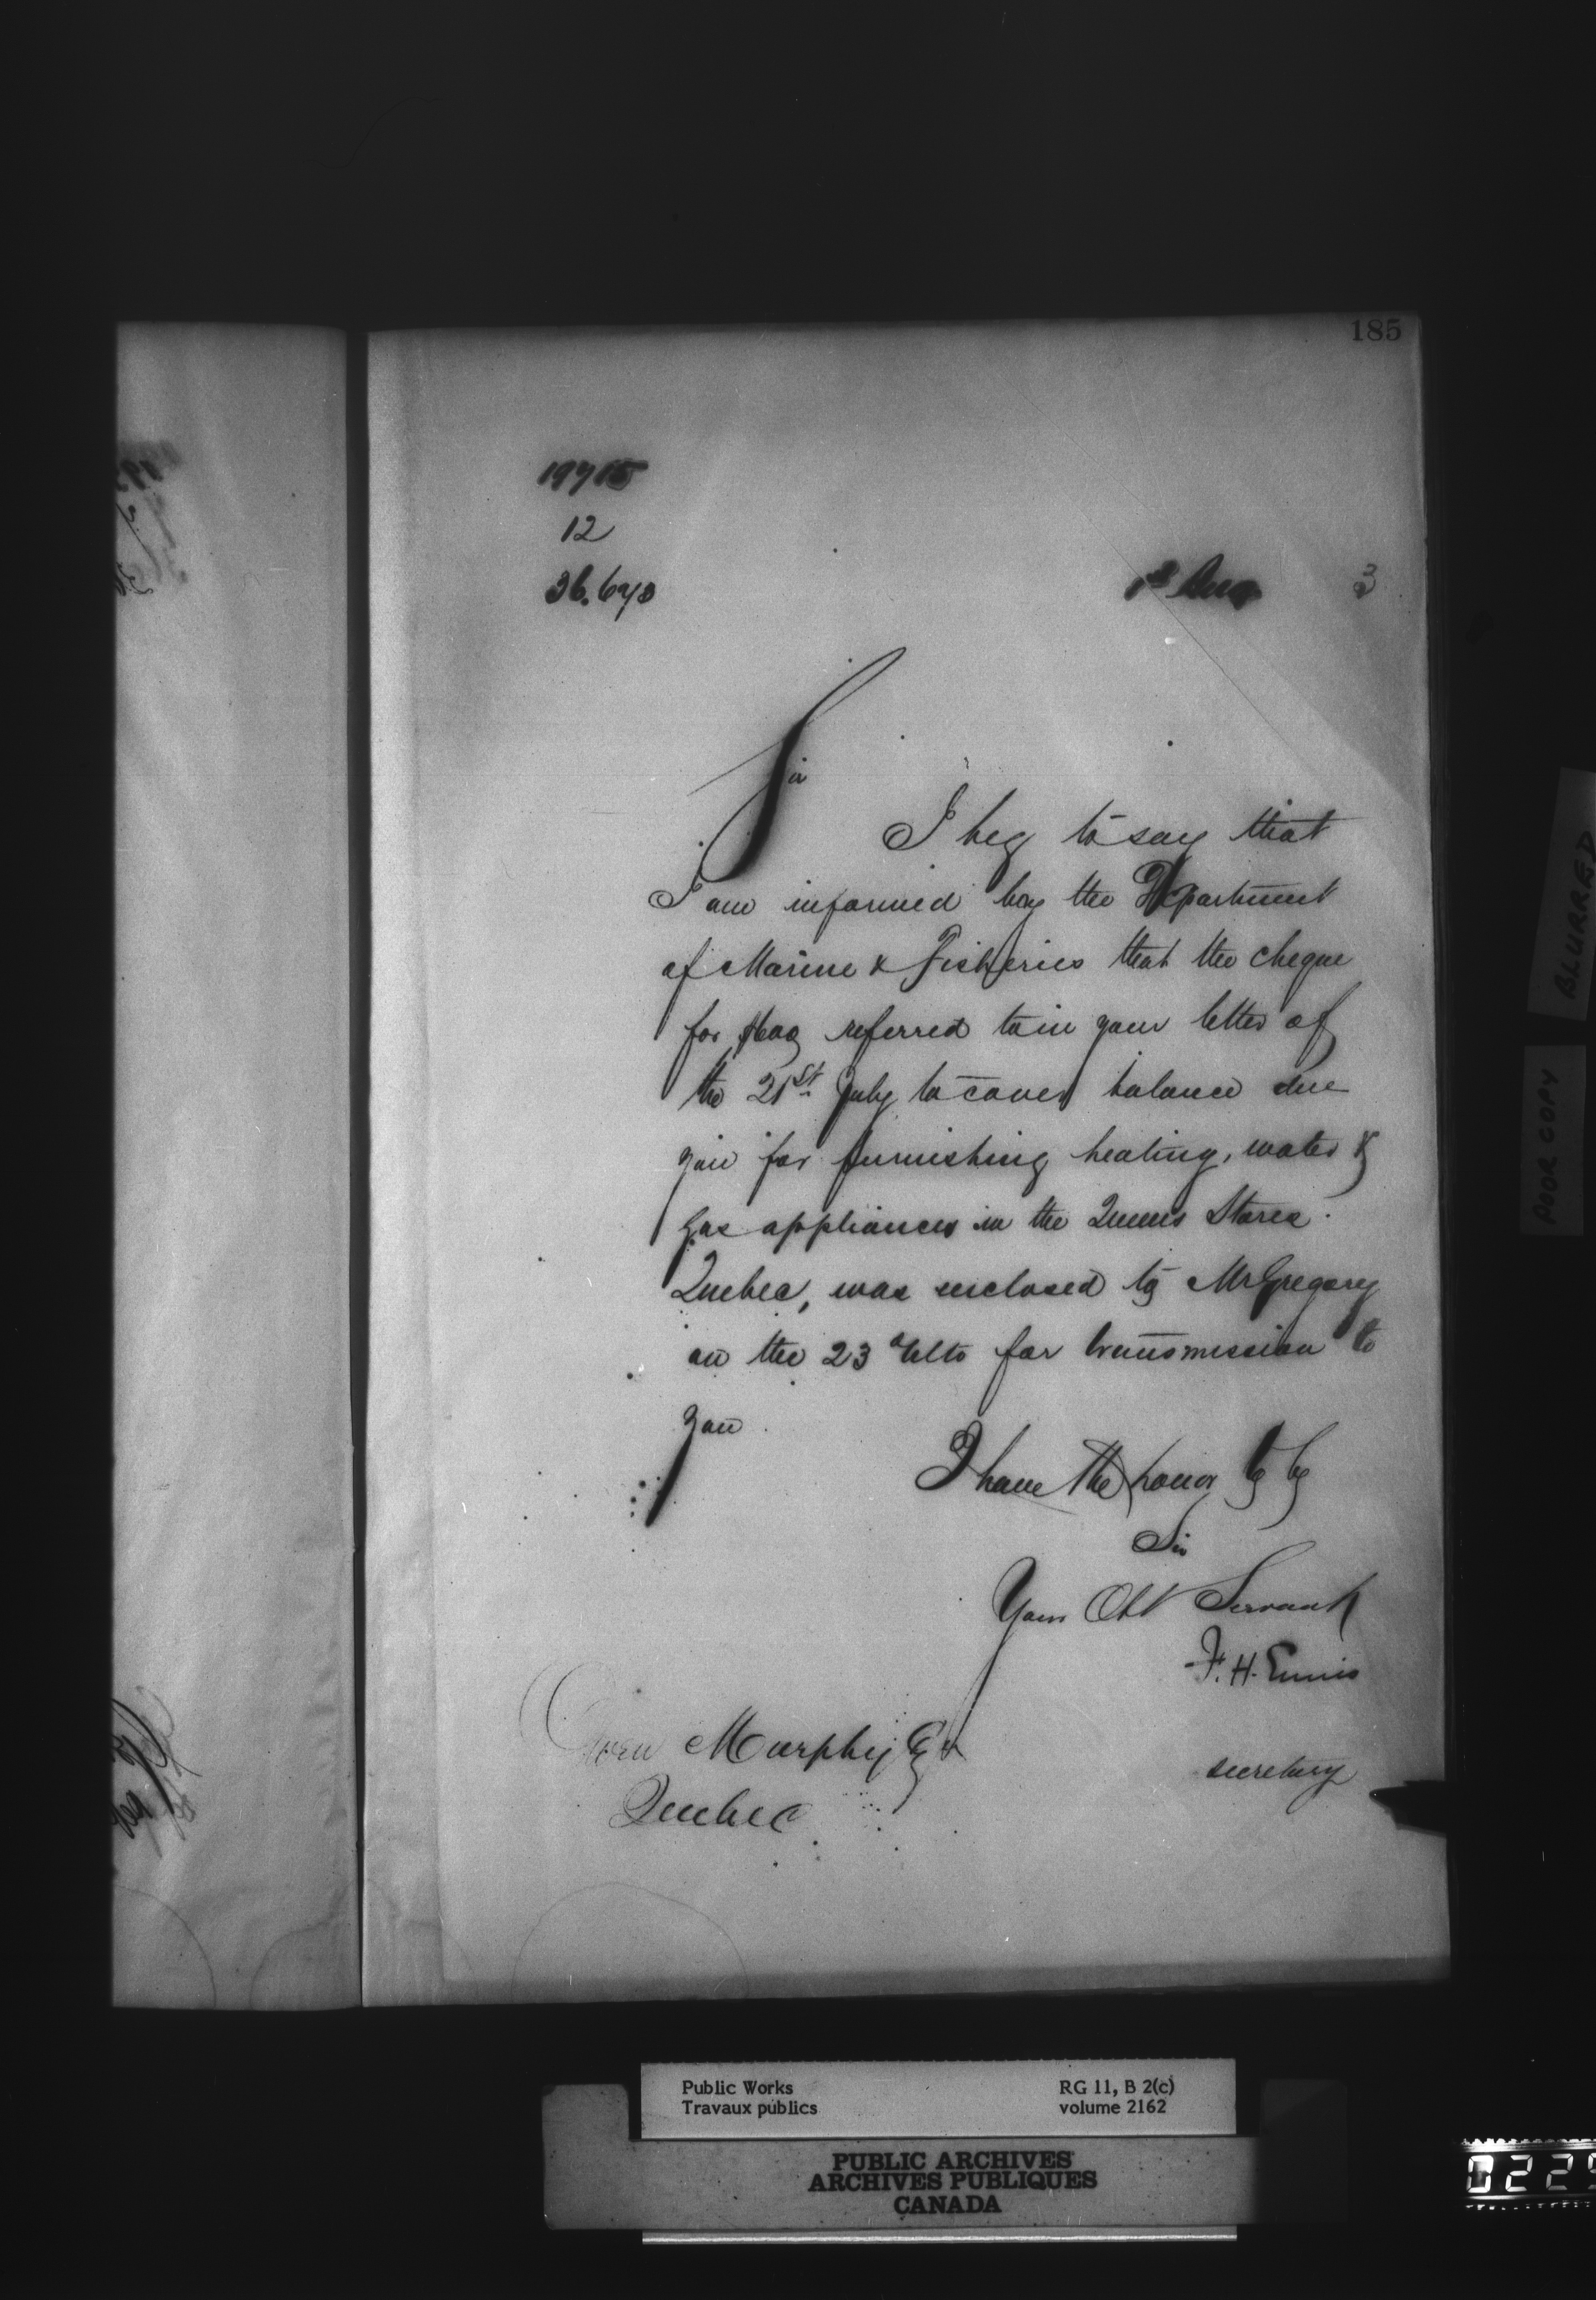 185
12
36.678
1st Aug 3
Sir
I beg to say that
I am informed by the Department
of Marine & Fisheries that the cheque
for referred to in your letter of
the 21st July to cover balance due
you for furnishing heating, water &
gas appliances in the Queens Stores.
Quebec, was enclosed to Mr Gregory
on the 23 Ulto for transmission to
you.
I have the honor to be
Sir
Your Obt Servant
F. H. Ennis
secretary
Owen Murphy Esq
Quebec
BLURRED
POOR COPY
Public Works
Travaux publics
RG 11, B 2(c)
volume 2162
PUBLIC ARCHIVES
ARCHIVES PUBLIQUES
CANADA